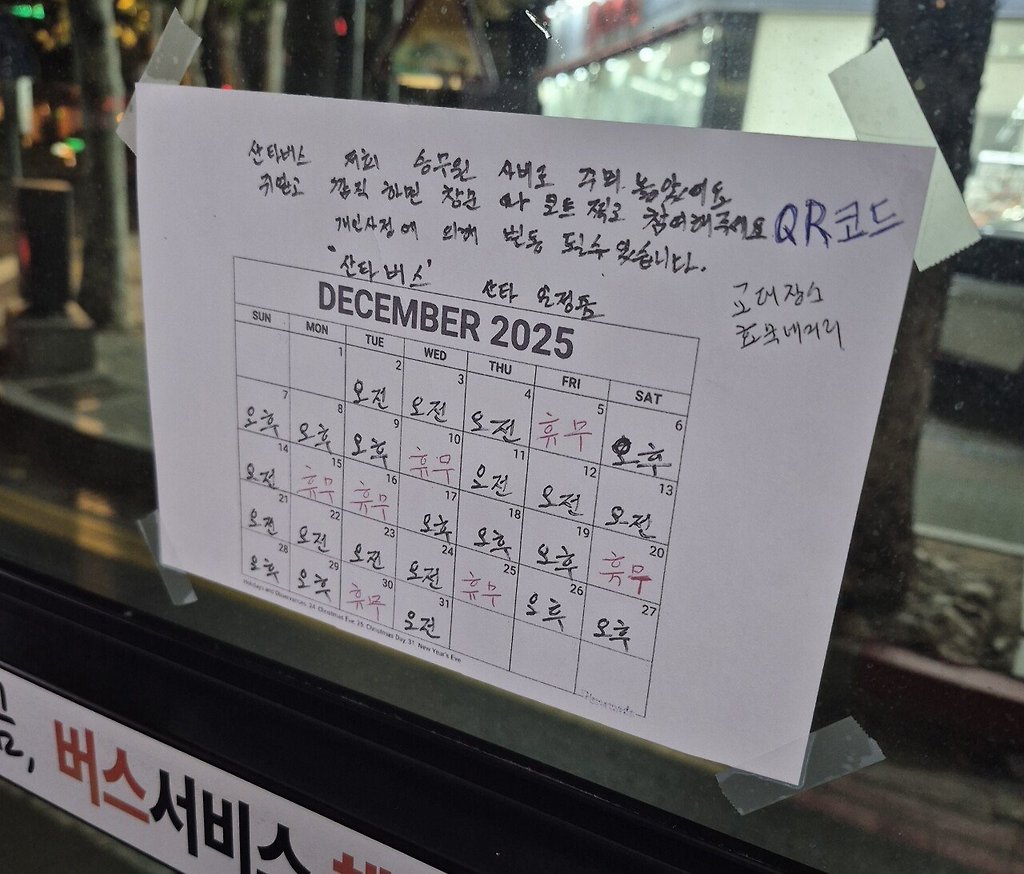 산타버스 저희 승무원 사비로 주최 놓았어요
귀안고 깜찍 하면 참순 와 포트 찍고 참여해주세요 QR코드
개인사정에 의해 변동 될수 있습니다.
"산타버스" 산타
교대장소
DECEMBER 2025
SUN MON TUE WED THU FRI SAT
1 2 오전 3 오전 4 오전 5 휴무 6 오후
7 오후 8 오후 9 오후 10 휴무 11 오전 12 오전 13 오전
14 오전 15 휴무 16 휴무 17 오후 18 오후 19 오후 20 휴무
21 오전 22 오전 23 오전 24 오전 25 휴무 26 오후 27 오후
28 오후 29 오후 30 휴무 31 오전
Holidays and Observances: 24. Christmas Eve, 25. Christmas Day, 31. New Year's Eve
버스서비스